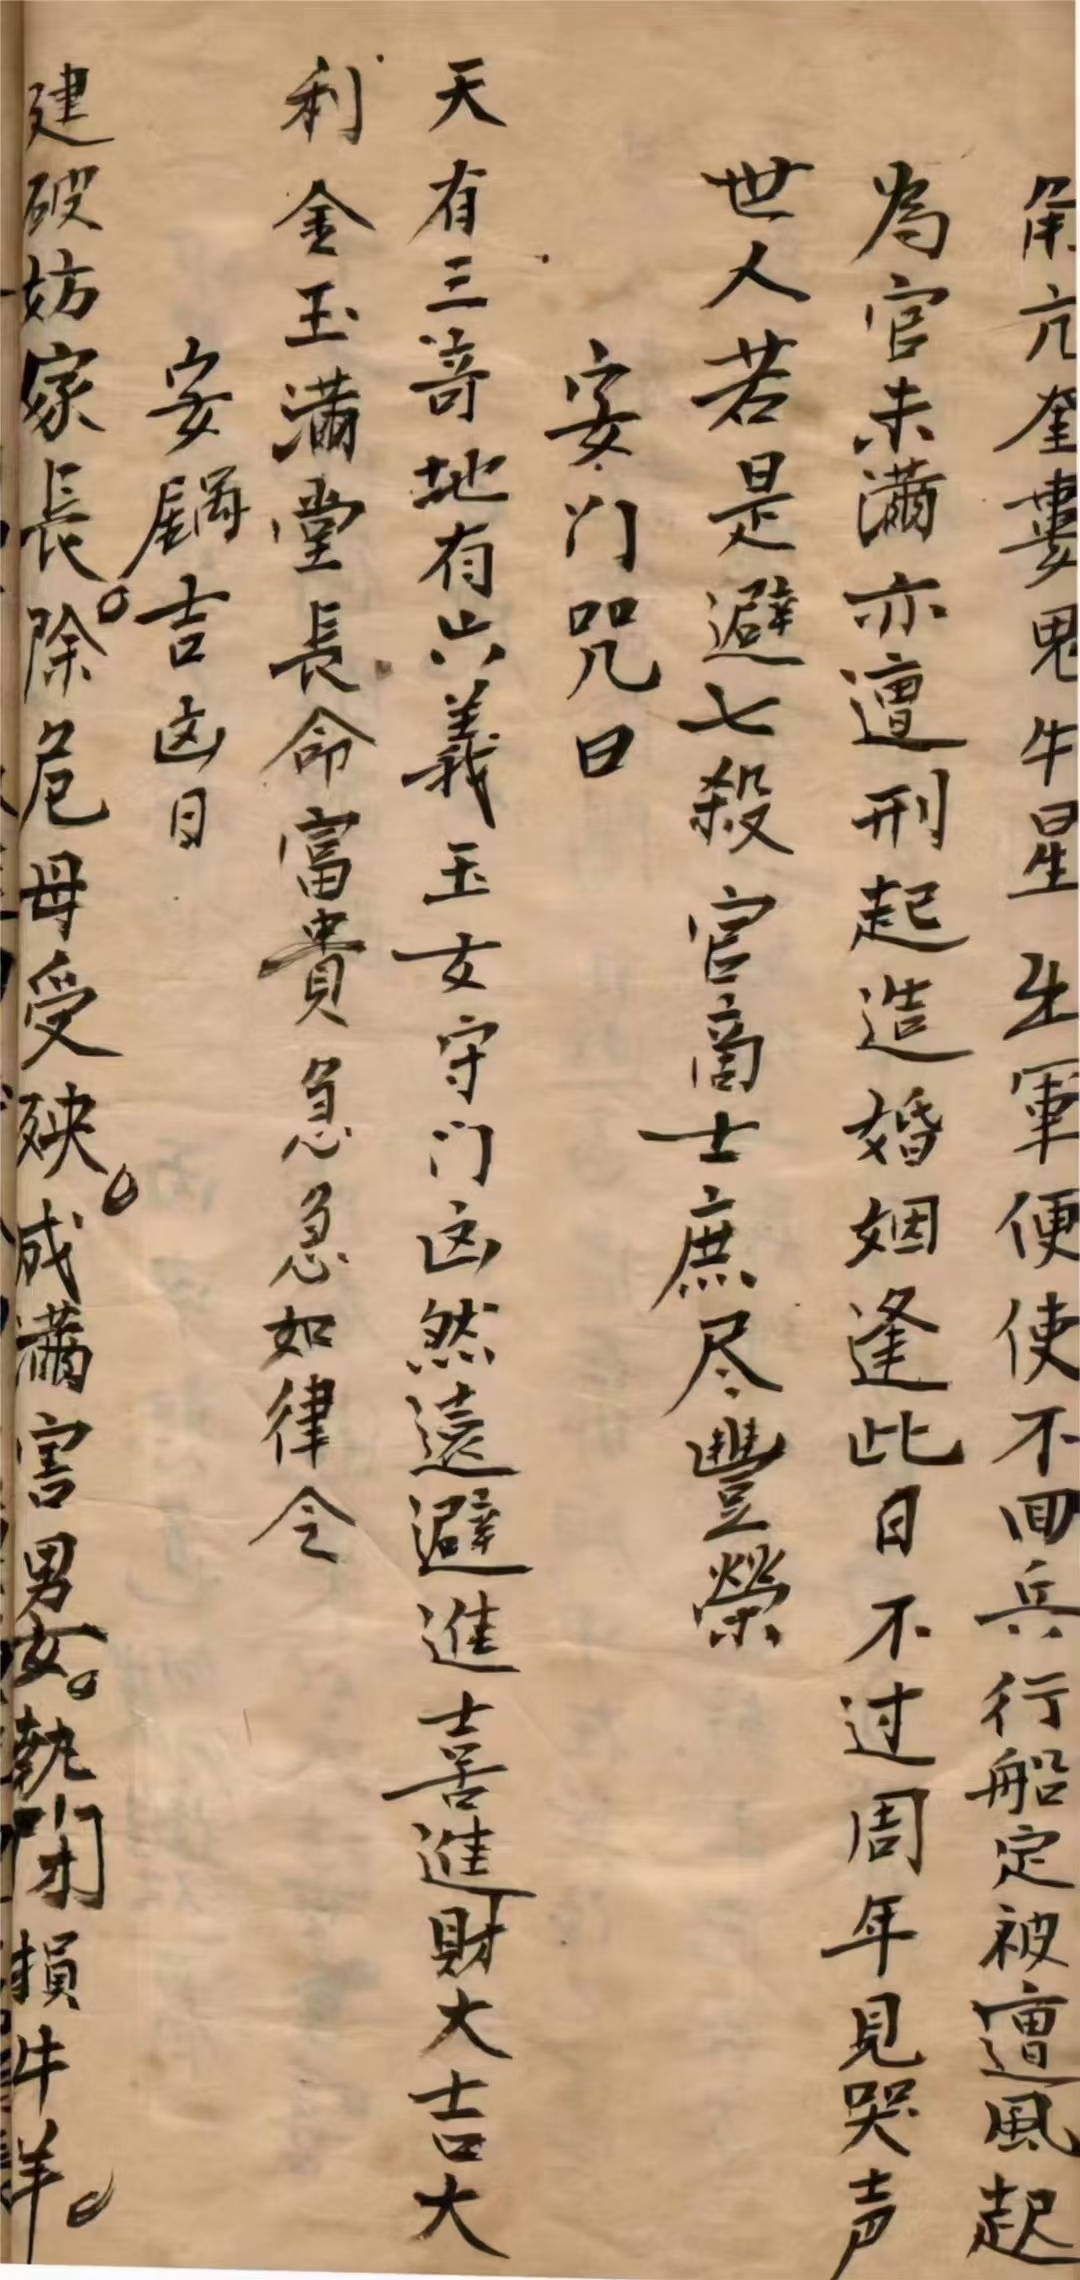 角亢奎婁鬼牛星出軍便使不回兵行船定被遭風起
為官未滿亦遭刑起造婚姻逢此日不过周年見哭声
世人若是避七殺官商士庶尽豐榮
安门咒曰
天有三竒地有六義玉女守门凶然遠避進喜進財大吉大
利金玉滿堂長命富貴急急如律令
安門吉凶日
建破妨家長。除危母受殃。成滿害男女。執閉損牛羊。